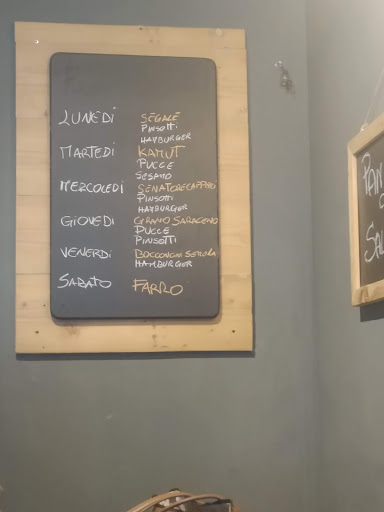 LUNEDÌ SEGALE
PINSOTTI
HAMBURGER
MARTEDÌ KAMUT
PUCCE
SESAMO
MERCOLEDÌ SENATORE CAPPELLI
PINSOTTI
HAMBURGER
GIOVEDÌ GRANO SARACENO
PUCCE
PINSOTTI
VENERDÌ BOCCONCINI SEMOLA
HAMBURGER
SABATO FARRO